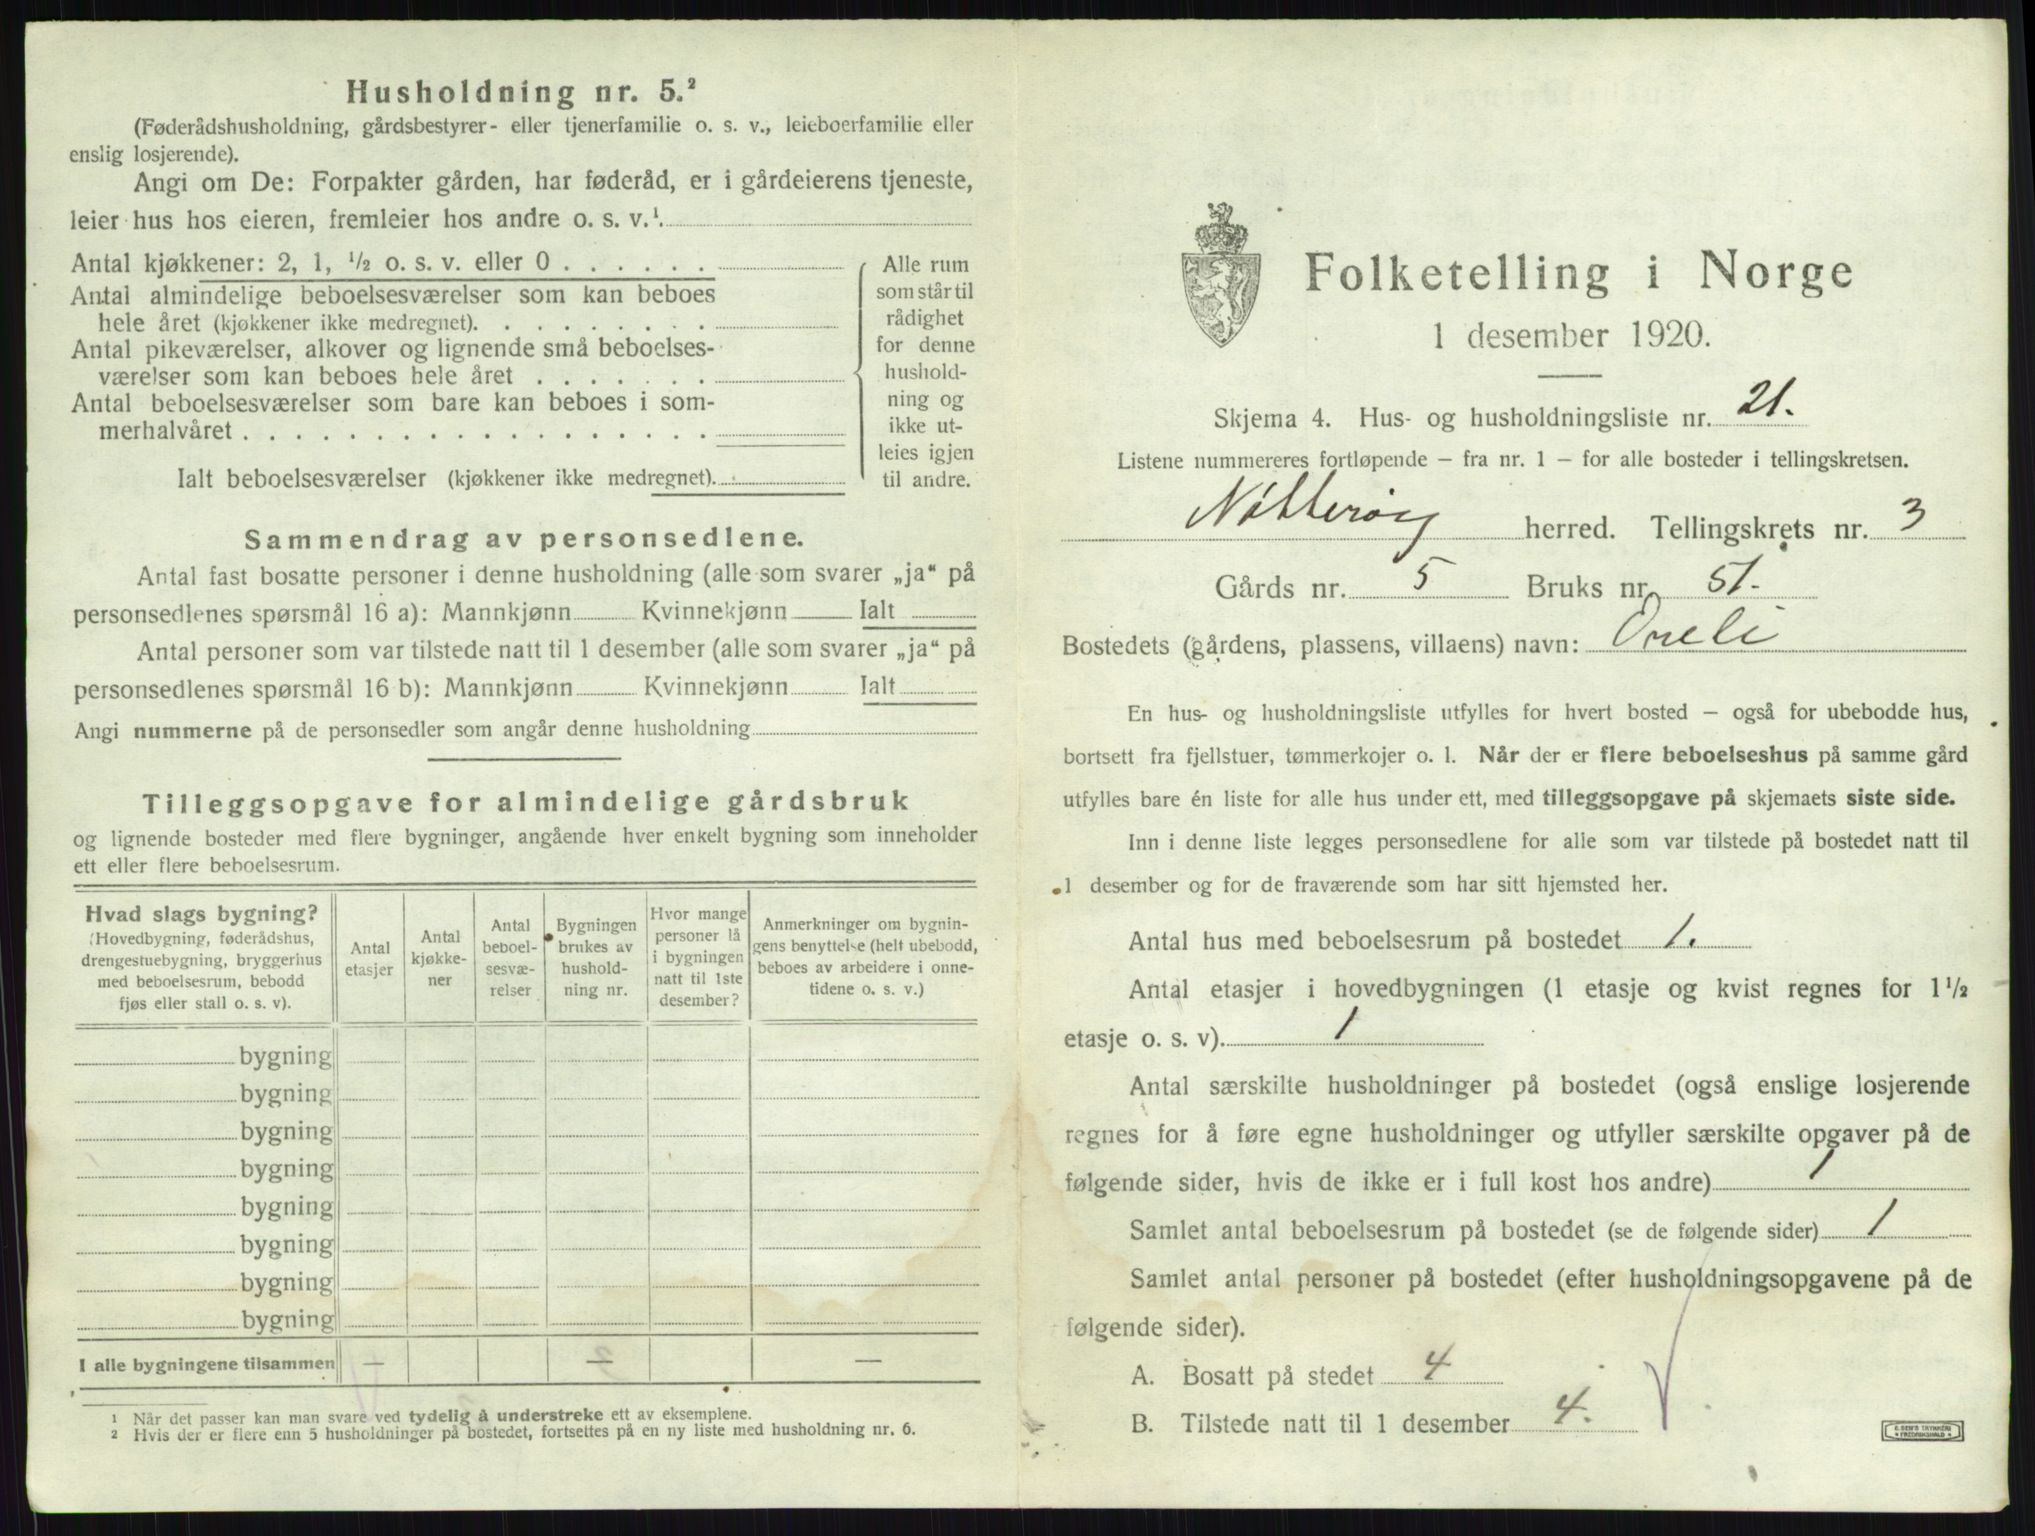 Husholdning nr. 5.²
(Føderådshusholdning, gårdsbestyrer- eller tjenerfamilie o. s. v., leieboerfamilie eller
enslig losjerende).
Angi om De: Forpakter gården, har føderåd, er i gårdeierens tjeneste,
leier hus hos eieren, fremleier hos andre o. s. v.¹.
Antal kjøkkener: 2, 1, ½ o. s. v. eller 0 . . . . . .
Antal almindelige beboelsesværelser som kan beboes
hele året (kjøkkener ikke medregnet). . . . . . . . .
Antal pikeværelser, alkover og lignende små beboelses-
værelser som kan beboes hele året . . . . . . .
Antal beboelsesværelser som bare kan beboes i som-
merhalvåret . . . . . . . . . . . . . . . . . .
Ialt beboelsesværelser (kjøkkener ikke medregnet).
Alle rum
som står til
rådighet
for denne
hushold-
ning og
ikke ut-
leies igjen
til andre.
Sammendrag av personsedlene.
Antal fast bosatte personer i denne husholdning (alle som svarer „ja“ på
personsedlenes spørsmål 16 a): Mannkjønn Kvinnekjønn Ialt
Antal personer som var tilstede natt til 1 desember (alle som svarer „ja“ på
personsedlenes spørsmål 16 b): Mannkjønn Kvinnekjønn Ialt
Angi nummerne på de personsedler som angår denne husholdning
Tilleggsopgave for almindelige gårdsbruk
og lignende bosteder med flere bygninger, angående hver enkelt bygning som inneholder
ett eller flere beboelsesrum.
Hvad slags bygning?
(Hovedbygning, føderådshus,
drengestuebygning, bryggerhus
med beboelsesrum, bebodd
fjøs eller stall o. s. v).
Antal
etasjer
Antal
kjøkke-
ner
Antal
beboel-
sesvæ-
relser
Bygningen
brukes av
hushold-
ning nr.
Hvor mange
personer lå
i bygningen
natt til 1ste
desember?
Anmerkninger om bygnin-
gens benyttelse (helt ubebodd,
beboes av arbeidere i onne-
tidene o. s. v.)
bygning
bygning
bygning
bygning
bygning
bygning
bygning
bygning
I alle bygningene tilsammen — — —
¹ Når det passer kan man svare ved tydelig å understreke ett av eksemplene.
² Hvis der er flere enn 5 husholdninger på bostedet, fortsettes på en ny liste med husholdning nr. 6.
Folketelling i Norge
1 desember 1920.
Skjema 4. Hus- og husholdningsliste nr. 21.
Listene nummereres fortløpende — fra nr. 1 — for alle bosteder i tellingskretsen.
Nøtterøy herred. Tellingskrets nr. 3
Gårds nr. 5 Bruks nr. 51.
Bostedets (gårdens, plassens, villaens) navn: Oreli
En hus- og husholdningsliste utfylles for hvert bosted — også for ubebodde hus,
bortsett fra fjellstuer, tømmerkojer o. l. Når der er flere beboelseshus på samme gård
utfylles bare én liste for alle hus under ett, med tilleggsopgave på skjemaets siste side.
Inn i denne liste legges personsedlene for alle som var tilstede på bostedet natt til
1 desember og for de fraværende som har sitt hjemsted her.
Antal hus med beboelsesrum på bostedet 1.
Antal etasjer i hovedbygningen (1 etasje og kvist regnes for 1½
etasje o. s. v). 1
Antal særskilte husholdninger på bostedet (også enslige losjerende
regnes for å føre egne husholdninger og utfyller særskilte opgaver på de
følgende sider, hvis de ikke er i full kost hos andre) 1
Samlet antal beboelsesrum på bostedet (se de følgende sider) 1
Samlet antal personer på bostedet (efter husholdningsopgavene på de
følgende sider).
A. Bosatt på stedet 4
B. Tilstede natt til 1 desember 4.